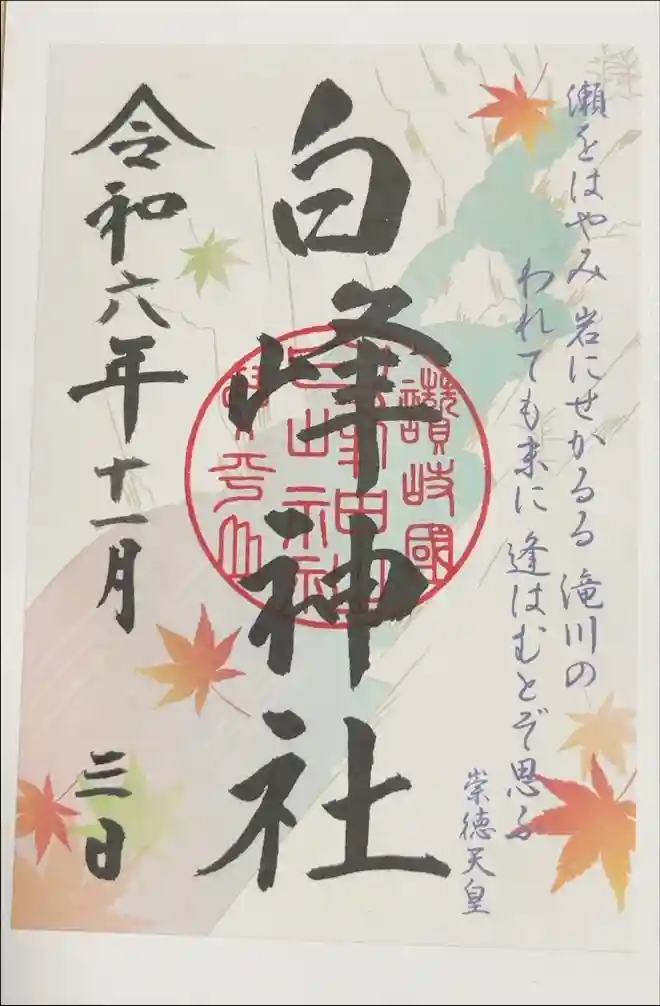 瀬をはやみ 岩にせかるる 滝川の
われても末に 逢はむとぞ思ふ
崇徳天皇
白峰神社
讃岐國
令和六年十一月 三日